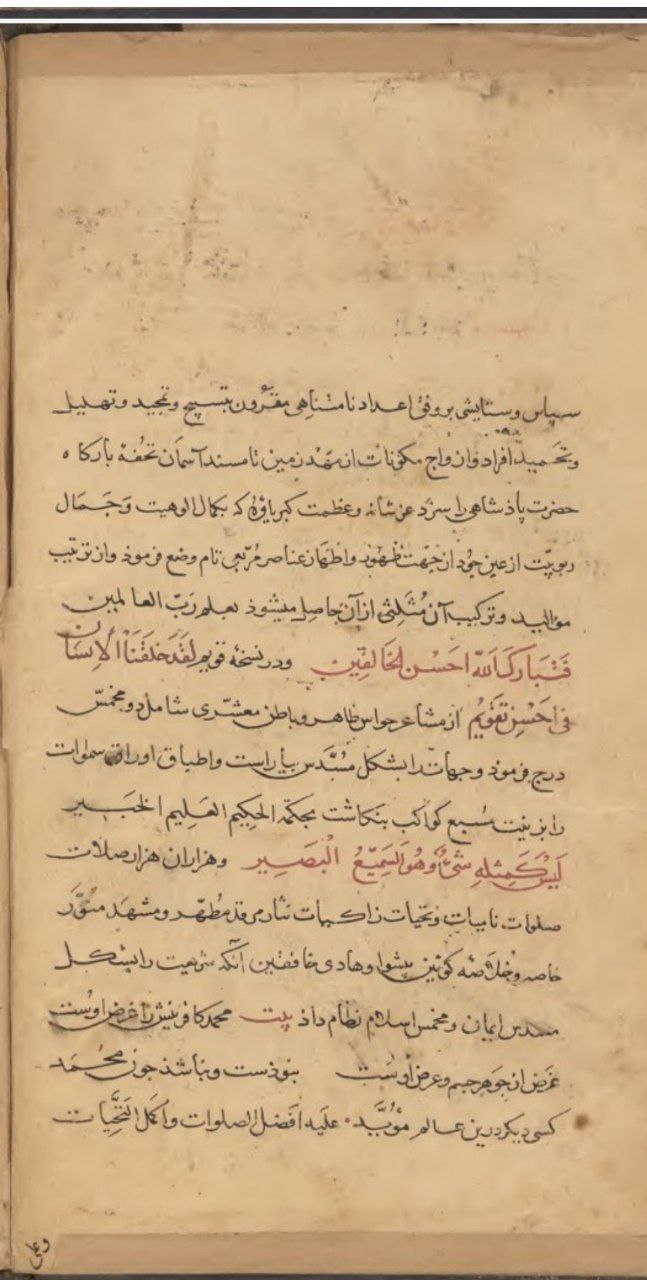 سپاس و ستایشی بر وفق اعداد نامتناهی مقرون بتسبیح و تمجید و تهلیل
و تحمید افراد و ازواج مکونات از مهد زمین تا مسند آسمان تحفهٔ بارکاه
حضرت پاذشاهی را سزد عز شانه و عظمت کبریاؤه که بکمال الوهیت و جمال
ربوبیّت از عین جود از جهت ظهور و اظهار عناصر مربعی تام وضع فرموذ و از ترتیب
موالید و ترکیب آن مثلثی از آن حاصل میشوذ بعلم رَبّ العالمین
فَتَبَارَكَ اللّٰه اَحسَن الخَالِقین و در نسخهٔ قویم لَقَد خَلَقنَا الْاِنسَان
فی اَحسَنِ تَقْوِیم از مشاعر حواس ظاهر و باطن معشّری شامل دو مخمّس
درج فرموذ و جهات را بشکل مسَدّس بیاراست و اطباق اوراق سموات
را بزینت سبع کواکب بنکاشت بحکمة الحکیم العلیم الخبیر
لَیْسَ کَمِثلِهِ شَیْءٌ وَهُوَ السَّمِیْعُ الْبَصِیر و هزاران هزار صلات
صلوات نامیات و تحیّات زاکیات نثار مرقد مطهّر و مشهد منوّر
خاصه و خلاصه کونین پیشوا و هادی خافقین آنکه شریعت را بشکل
مسدس ایمان و مخمس اسلام نظام داذ بیت محمد کافرینش را غرض اوست
غرض از جوهر جسم و عرض اوست بنوذست و نباشذ چون محمد
کسی دیکر درین عالم مؤیَّد علَیه افضل الصلوات و اکمل التحیَّات
وعلی